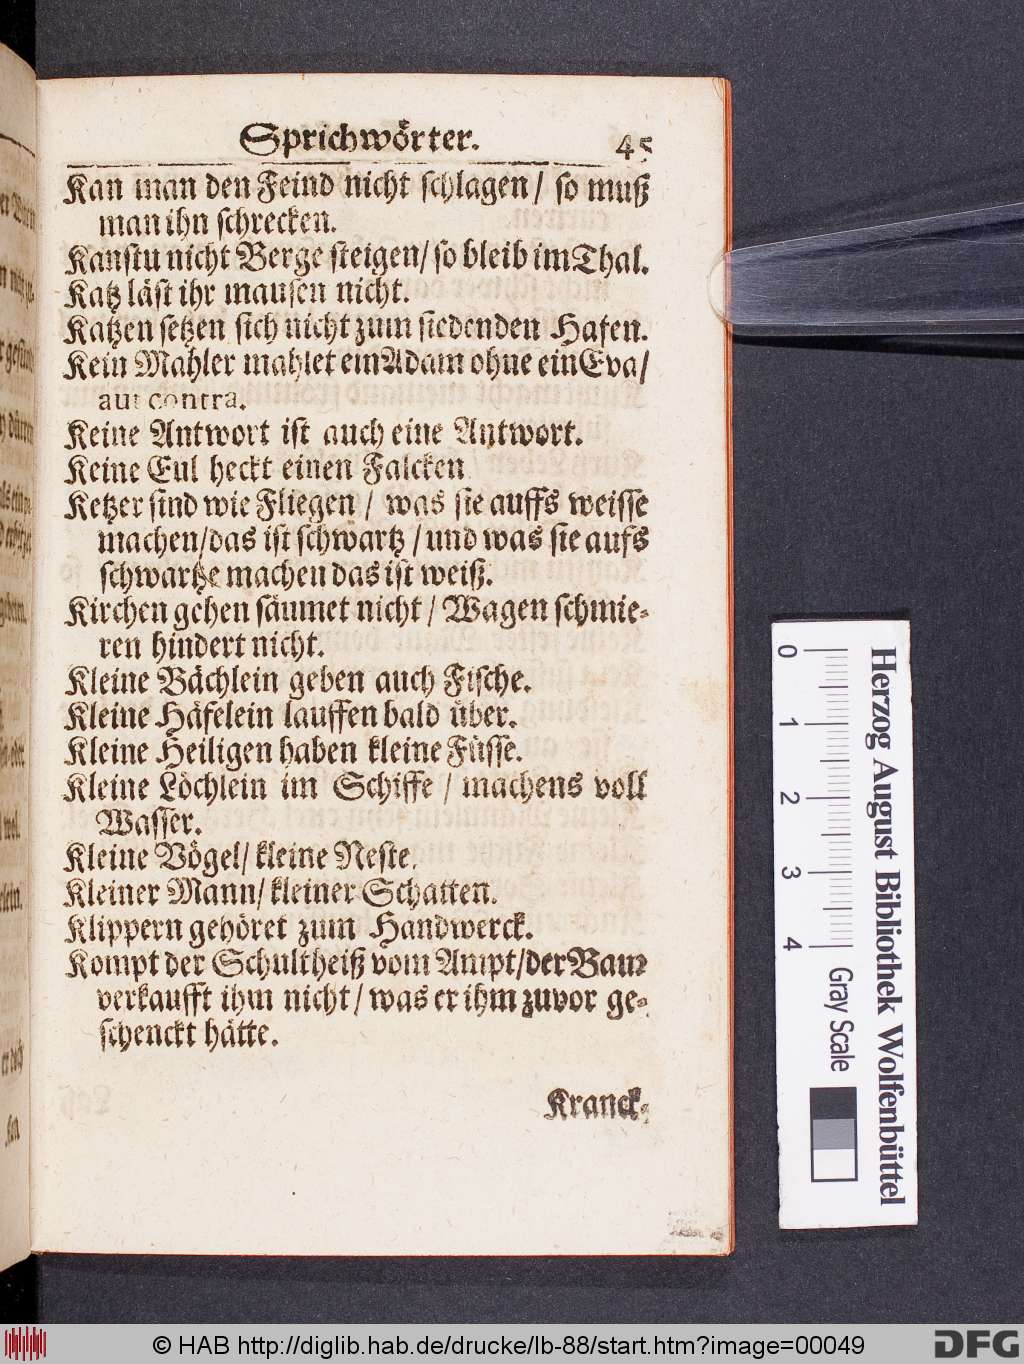 Sprichwörter. 45
Kan man den Feind nicht schlagen / so muß
man ihn schrecken.
Kanstu nicht Berge steigen/ so bleib im Thal.
Katz läst ihr mausen nicht.
Katzen setzen sich nicht zum siedenden Hafen.
Kein Mahler mahlet ein Adam ohne ein Eva/
aut contra.
Keine Antwort ist auch eine Antwort.
Keine Eul heckt einen Falcken
Ketzer sind wie Fliegen / was sie auffs weisse
machen/das ist schwartz / und was sie aufs
schwartze machen das ist weiß.
Kirchen gehen säumet nicht / Wagen schmie-
ren hindert nicht.
Kleine Bächlein geben auch Fische.
Kleine Häfelein lauffen bald über.
Kleine Heiligen haben kleine Füsse.
Kleine Löchlein im Schiffe / machens voll
Wasser.
Kleine Vögel/ kleine Neste.
Kleiner Mann/ kleiner Schatten.
Klippern gehöret zum Handwerck.
Kompt der Schultheiß vom Ampt/der Baur
verkaufft ihm nicht / was er ihm zuvor ge-
schenckt hätte.
Kranck-
0 1 2 3 4 Gray Scale
Herzog August Bibliothek Wolfenbüttel
© HAB http://diglib.hab.de/drucke/lb-88/start.htm?image=00049
DFG